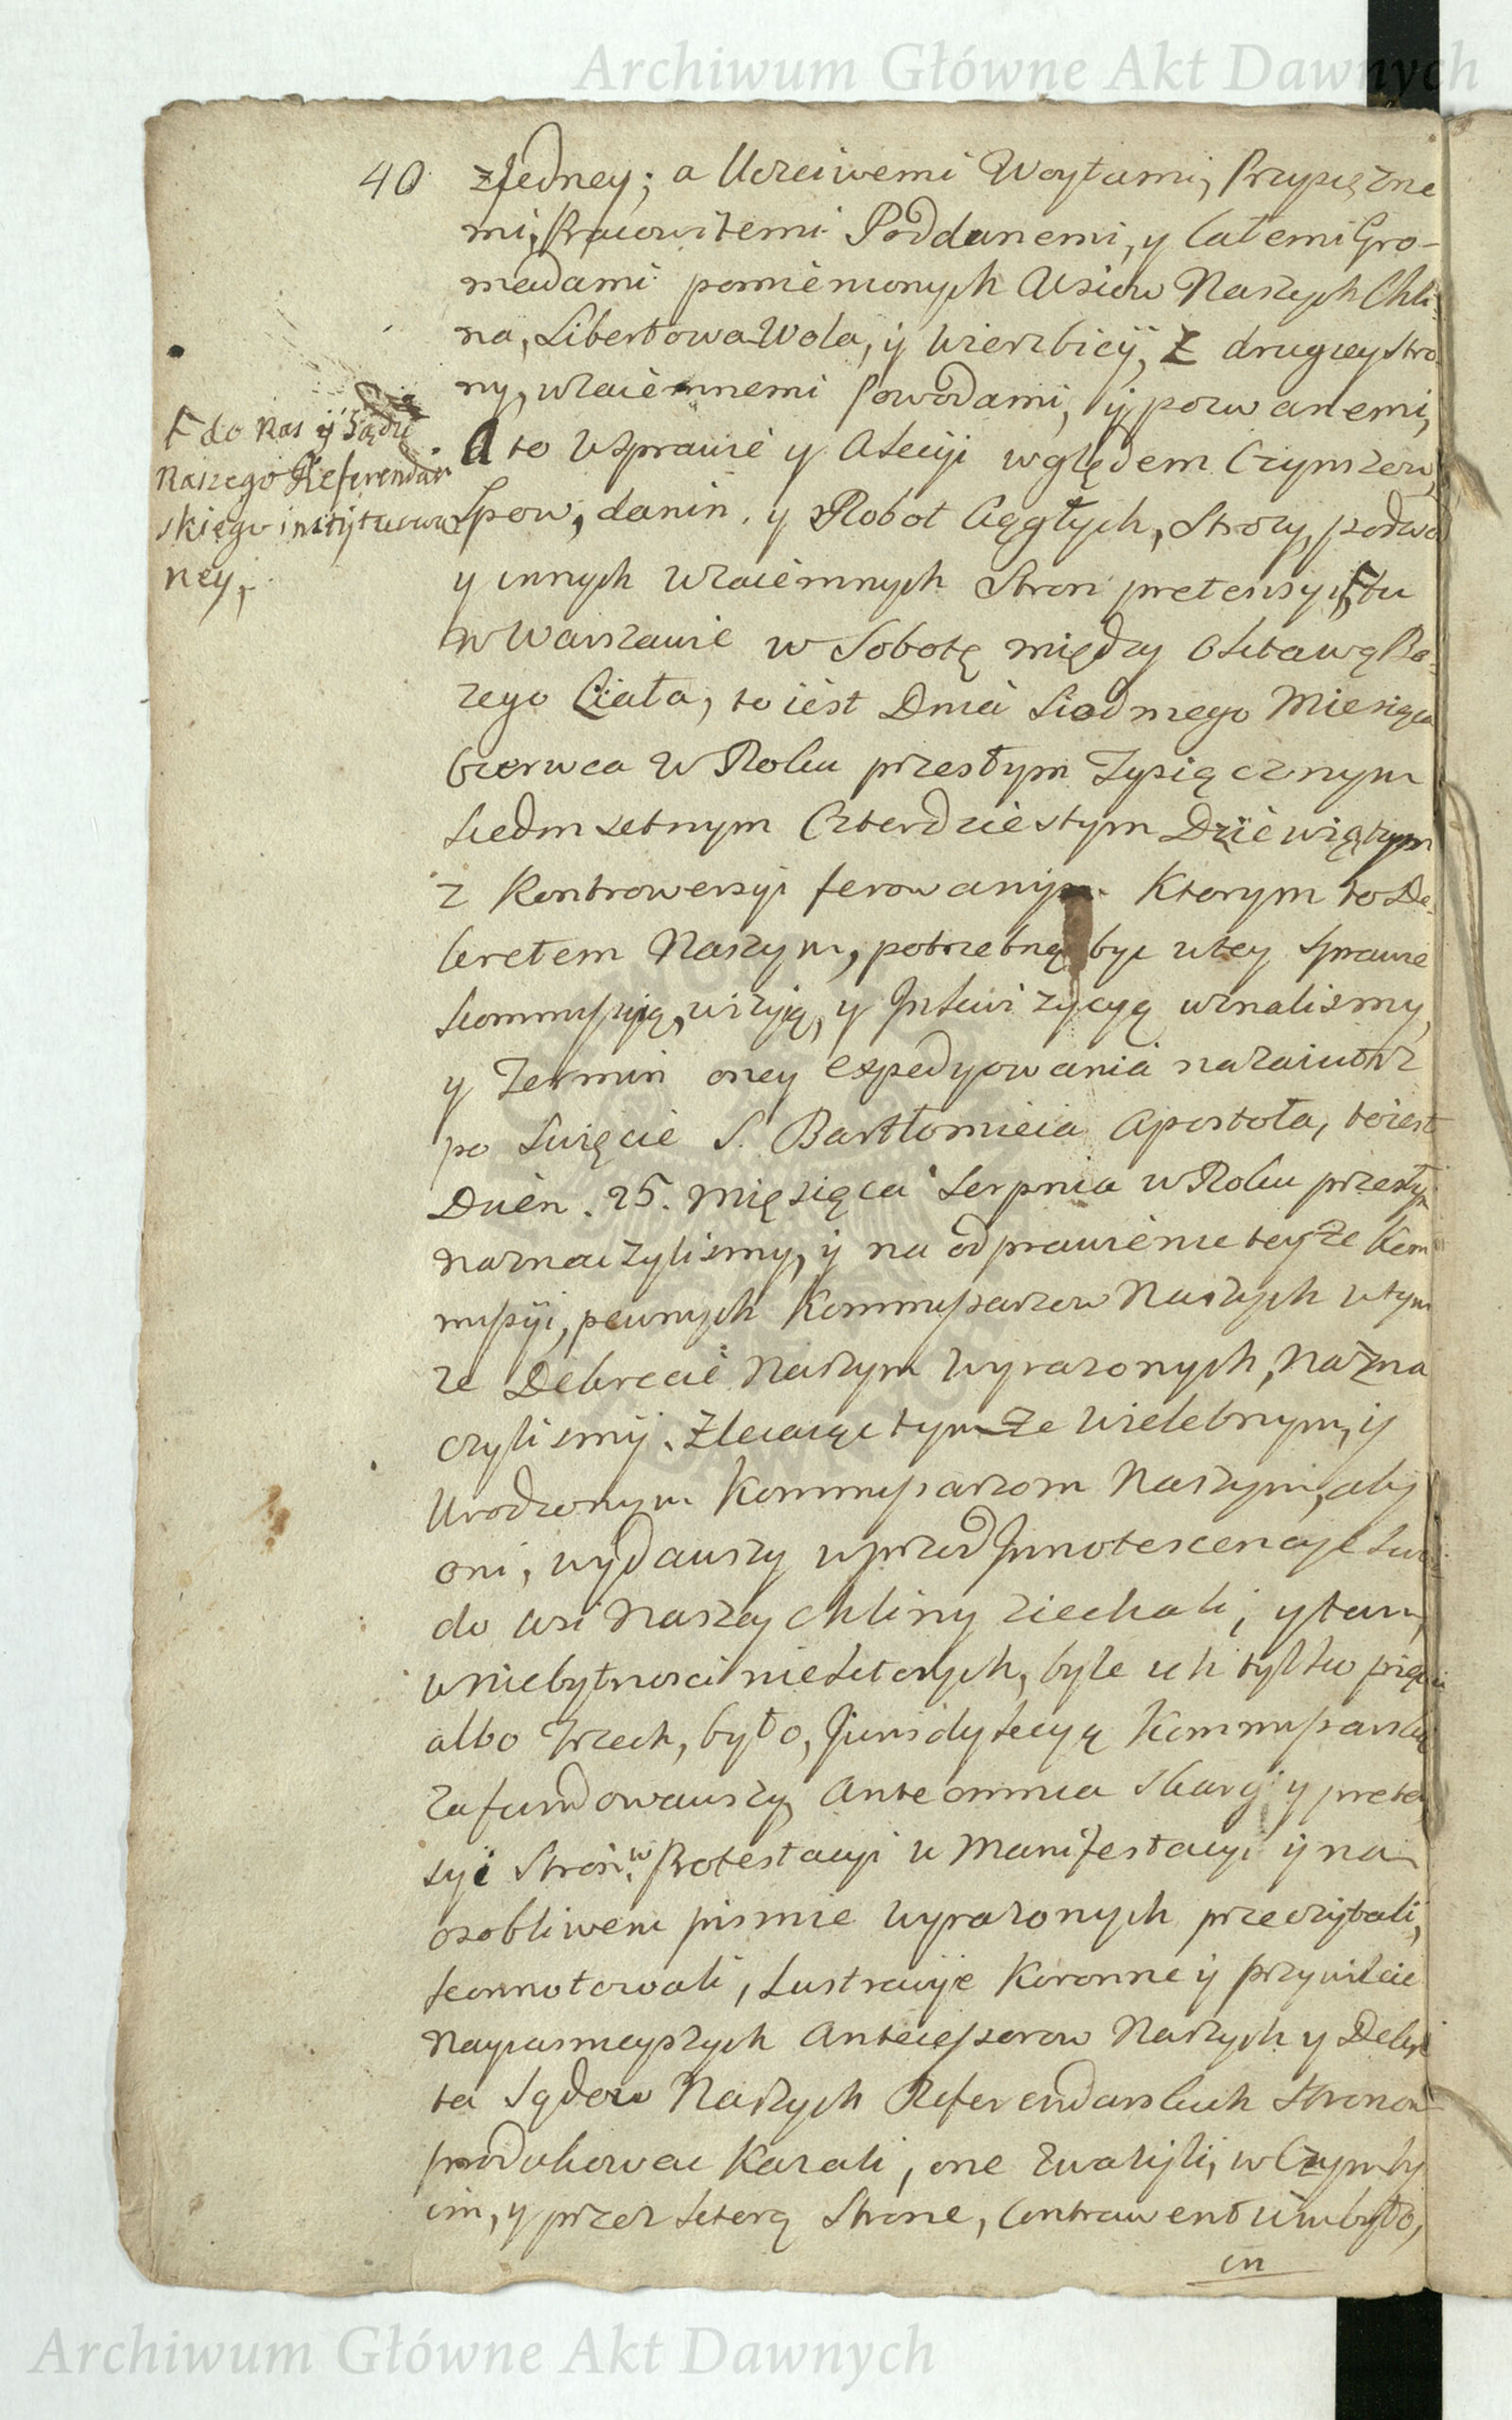 Archiwum Główne Akt Dawnych
40 z Jedney; a Uczciwemi Woytami, Przysięzne
mi, Pracowitemi Poddanemi, y Całemi Gro-
madami pomienionych Wsiow Naszych Chli-
na, Libertowa Wola, y Wierzbicy, z drugiey Stro
ny, wzaiemnemi Powodami, y pozwanemi,
A to wsprawie y Akcyi względem Czynszow,
Spow, danin, y Robot Ciągłych, Stroży, podwod
y innych wzaiemnych Stron pretensyi, Ⱶ tu
w Warszawie w Sobotę między Oktawą Bo-
żego Ciała, to iest Dnia Siodmego Miesiąca
Czerwca w Roku przeszłym Tysiącznym
Siedmsetnym Czterdziestym Dziewiątym
z Kontrowersyi ferowanym. Ktorym to De-
kretem Naszym, potrzebną byc wtey Sprawie
Kommissyią, wizyią, y Inkwizycyą uznalismy,
y Termin oney expedyowania nazaiutrz
po Swięcie S. Bartłomieia Apostoła, toiest
Dnien. 25. Mięsiąca Serpnia w Roku przeszłym
naznaczylismy, y na odprawienie teyże Kom
missyi, pewnych Kommissarzow Naszych wtym
ze Dekrecie Naszym wyrazonych, nazna
czylismy. Zlecaiąc tymże Wielebnym, y
Urodzonym Kommissarzom Naszym, aby
oni, wydawszy wprzod Innotescencye swe
do wsi Naszey Chliny ziechali, y tam,
w niebytnosci niektorych, byle ich tylko pięciu
albo Trzech, było, Jurisdykcyą Kommissarską
zafundowawszy, Ante omnia Skargi y preten
syi Stron, w Protestacyi u Manifestacyi y na
osobliwem pismie wyrazonych przeczytali,
konnotowali, Lustracyje Koronne y przywileie
Nayiasnieyszych Antecessorow Naszych y Dekre
ta Sądow Naszych Referendarskich Stronom
produkowac Kazali, one zwazyli, w Czym by
im, y przez ktorą Strone, Contraventum było,
in
Ⱶ do Nas y Sądu
Naszego Referendar
skiego instytuowa
ney,
Archiwum Główne Akt Dawnych